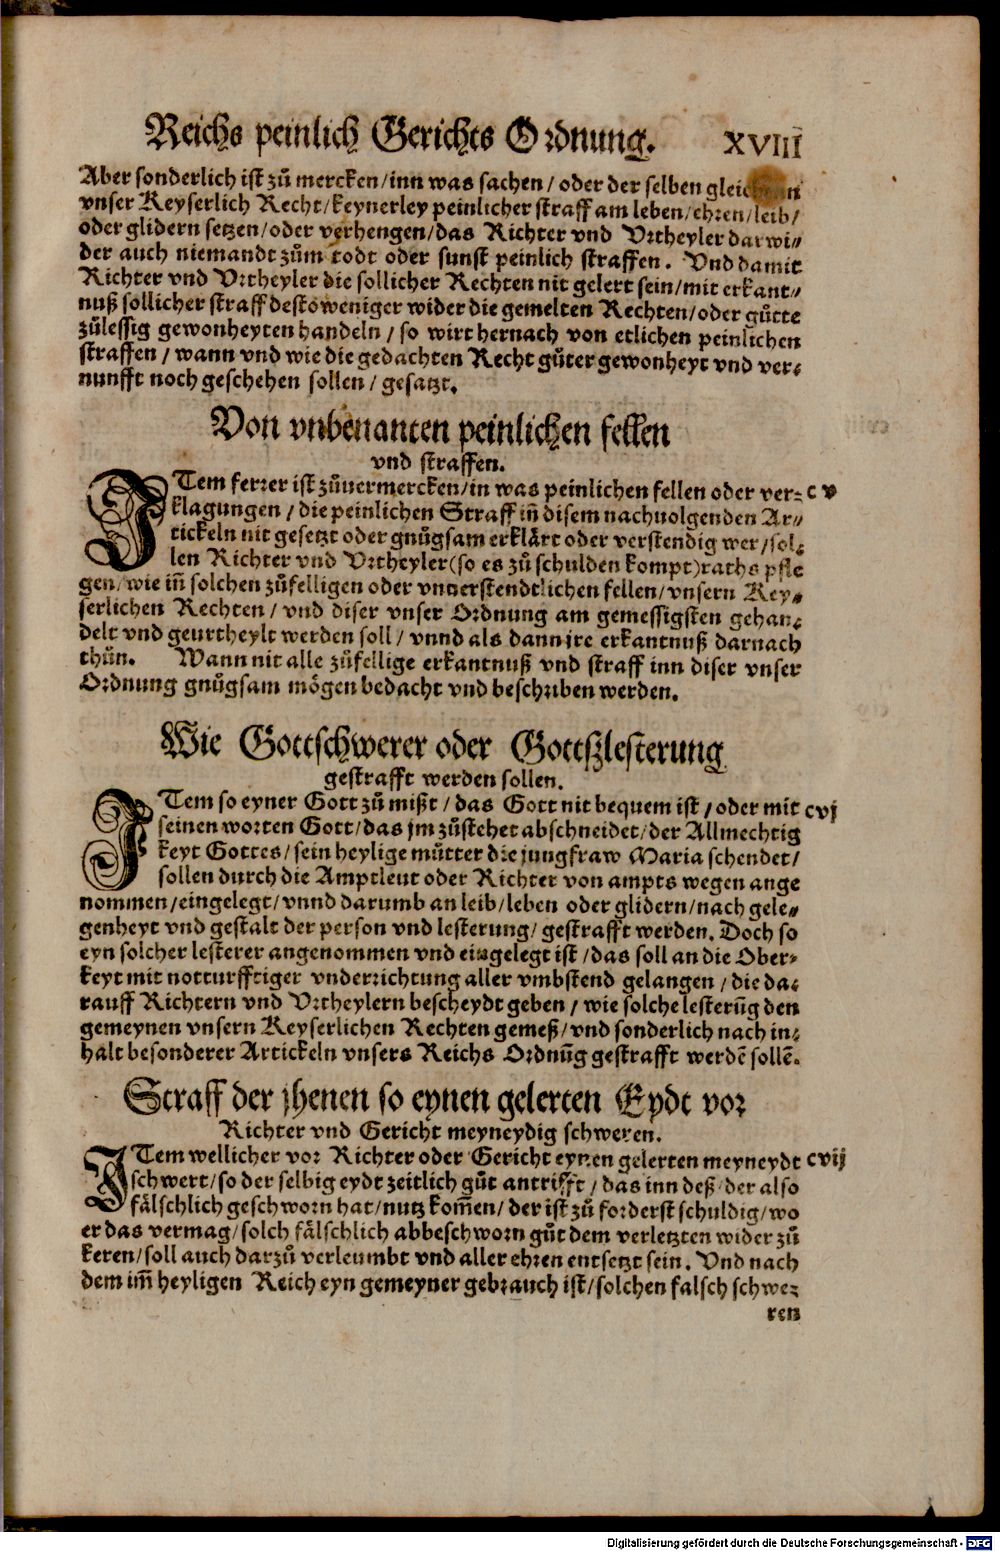 Reichs peinlich Gerichts Ordnung. XVIII
Aber sonderlich ist zů mercken/inn was sachen/oder der selben
vnser Keyserlich Recht/keynerley peinlicher straff am leben/ehren/leib/
oder glidern setzen/oder verhengen/das Richter vnd Vrtheyler darwi⸗
der auch niemandt zům todt oder sunst peinlich straffen. Vnd damit
Richter vnd Vrtheyler die sollicher Rechten nit gelert sein/mit erkant⸗
nuß sollicher straff destoweniger wider die gemelten Rechten/oder gůtte
zůlessig gewonheyten handeln/so wirt hernach von etlichen peinlichen
straffen/wann vnd wie die gedachten Recht gůter gewonheyt vnd ver⸗
nunfft noch geschehen sollen/gesatzt.
Von vnbenanten peinlichen fellen
vnd straffen.
ITem ferrer ist zůuermercken/in was peinlichen fellen oder ver⸗ cv
klagungen/die peinlichen Straff iñ disem nachuolgenden Ar⸗
tickeln nit gesetzt oder gnůgsam erklärt oder verstendig wer/sol⸗
len Richter vnd Vrtheyler(so es zů schulden kompt)raths pfle
gen/wie iñ solchen zůfelligen oder vnuerstendtlichen fellen/vnsern Key⸗
serlichen Rechten/vnd diser vnser Ordnung am gemessigsten gehan⸗
delt vnd geurtheylt werden soll/vnnd als dann jre erkantnuß darnach
thůn. Wann nit alle zůfellige erkantnuß vnd straff inn diser vnser
Ordnung gnůgsam mögen bedacht vnd beschriben werden.
Wie Gottschwerer oder Gottßlesterung
gestrafft werden sollen.
ITem so eyner Gott zů mißt/das Gott nit bequem ist/oder mit cvj
seinen worten Gott/das jm zůstehet abschneidet/der Allmechtig
keyt Gottes/sein heylige můtter die jungfraw Maria schendet/
sollen durch die Amptleut oder Richter von ampts wegen ange
nommen/eingelegt/vnnd darumb an leib/leben oder glidern/nach gele⸗
genheyt vnd gestalt der person vnd lesterung/gestrafft werden. Doch so
eyn solcher lesterer angenommen vnd eingelegt ist/das soll an die Ober⸗
keyt mit notturfftiger vnderrichtung aller vmbstend gelangen/die da⸗
rauff Richtern vnd Vrtheylern bescheydt geben/wie solche lesterũg den
gemeynen vnsern Keyserlichen Rechten gemeß/vnd sonderlich nach in⸗
halt besonderer Artickeln vnsers Reichs Ordnũg gestrafft werdẽ sollẽ.
Straff der jhenen so eynen gelerten Eydt vor
Richter vnd Gericht meyneydig schweren.
ITem wellicher vor Richter oder Gericht eynen gelerten meyneydt cvij
schwert/so der selbig eydt zeitlich gůt antrifft/das inn deß der also
fälschlich geschworn hat/nutz kom̃en/der ist zů forderst schuldig/wo
er das vermag/solch fälschlich abbeschworn gůt dem verletzten wider zů
keren/soll auch darzů verleumbt vnd aller ehren entsetzt sein. Vnd nach
dem im̃ heyligen Reich eyn gemeyner gebrauch ist/solchen falsch schwe⸗
ren
Digitalisierung gefördert durch die Deutsche Forschungsgemeinschaft - DFG